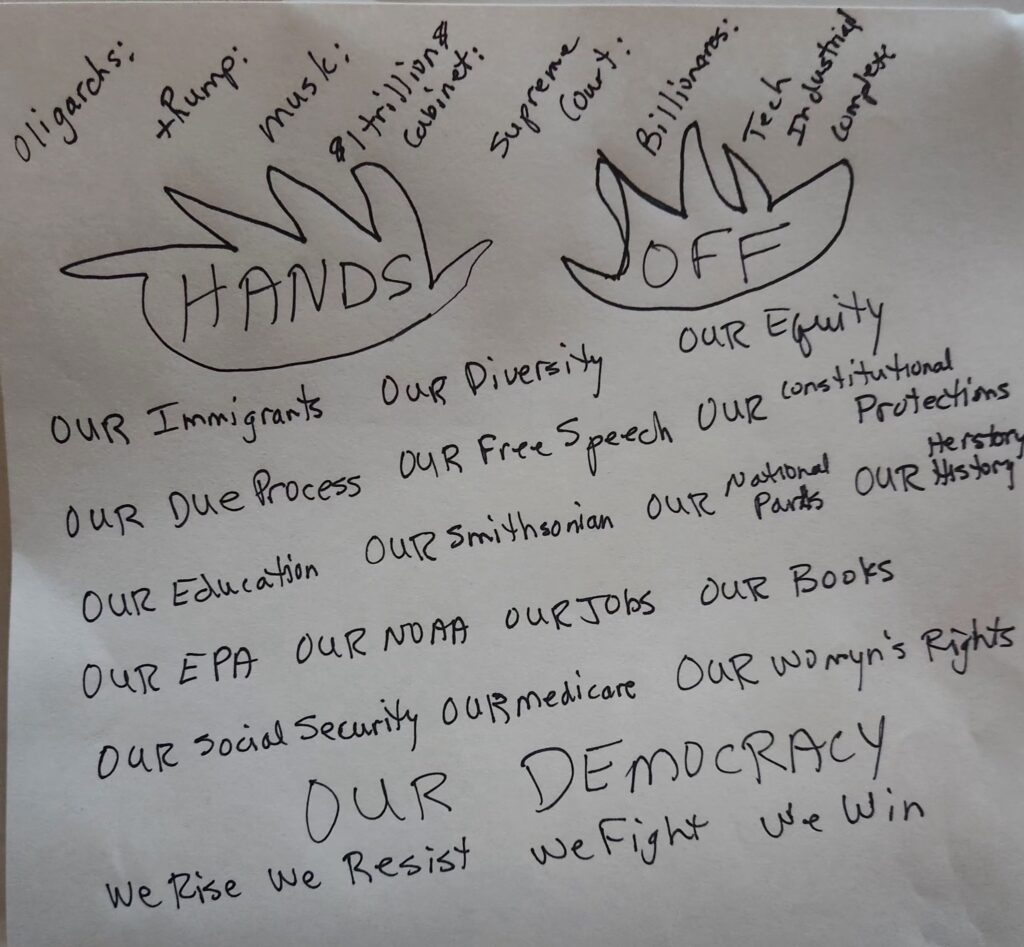 Oligarchs:
tRump:
musk:
$1 trillion $
Cabinet:
Supreme
Court:
Billionares:
Tech
Industrial
Complex
HANDS OFF
OUR Immigrants OUR Diversity OUR Equity
OUR Due Process OUR Free Speech OUR Constitutional Protections
OUR Education OUR Smithsonian OUR National Parks OUR Herstory History
OUR EPA OUR NOAA OUR Jobs OUR Books
OUR Social Security OUR medicare OUR Womyn's Rights
OUR DEMOCRACY
We Rise We Resist We Fight We Win